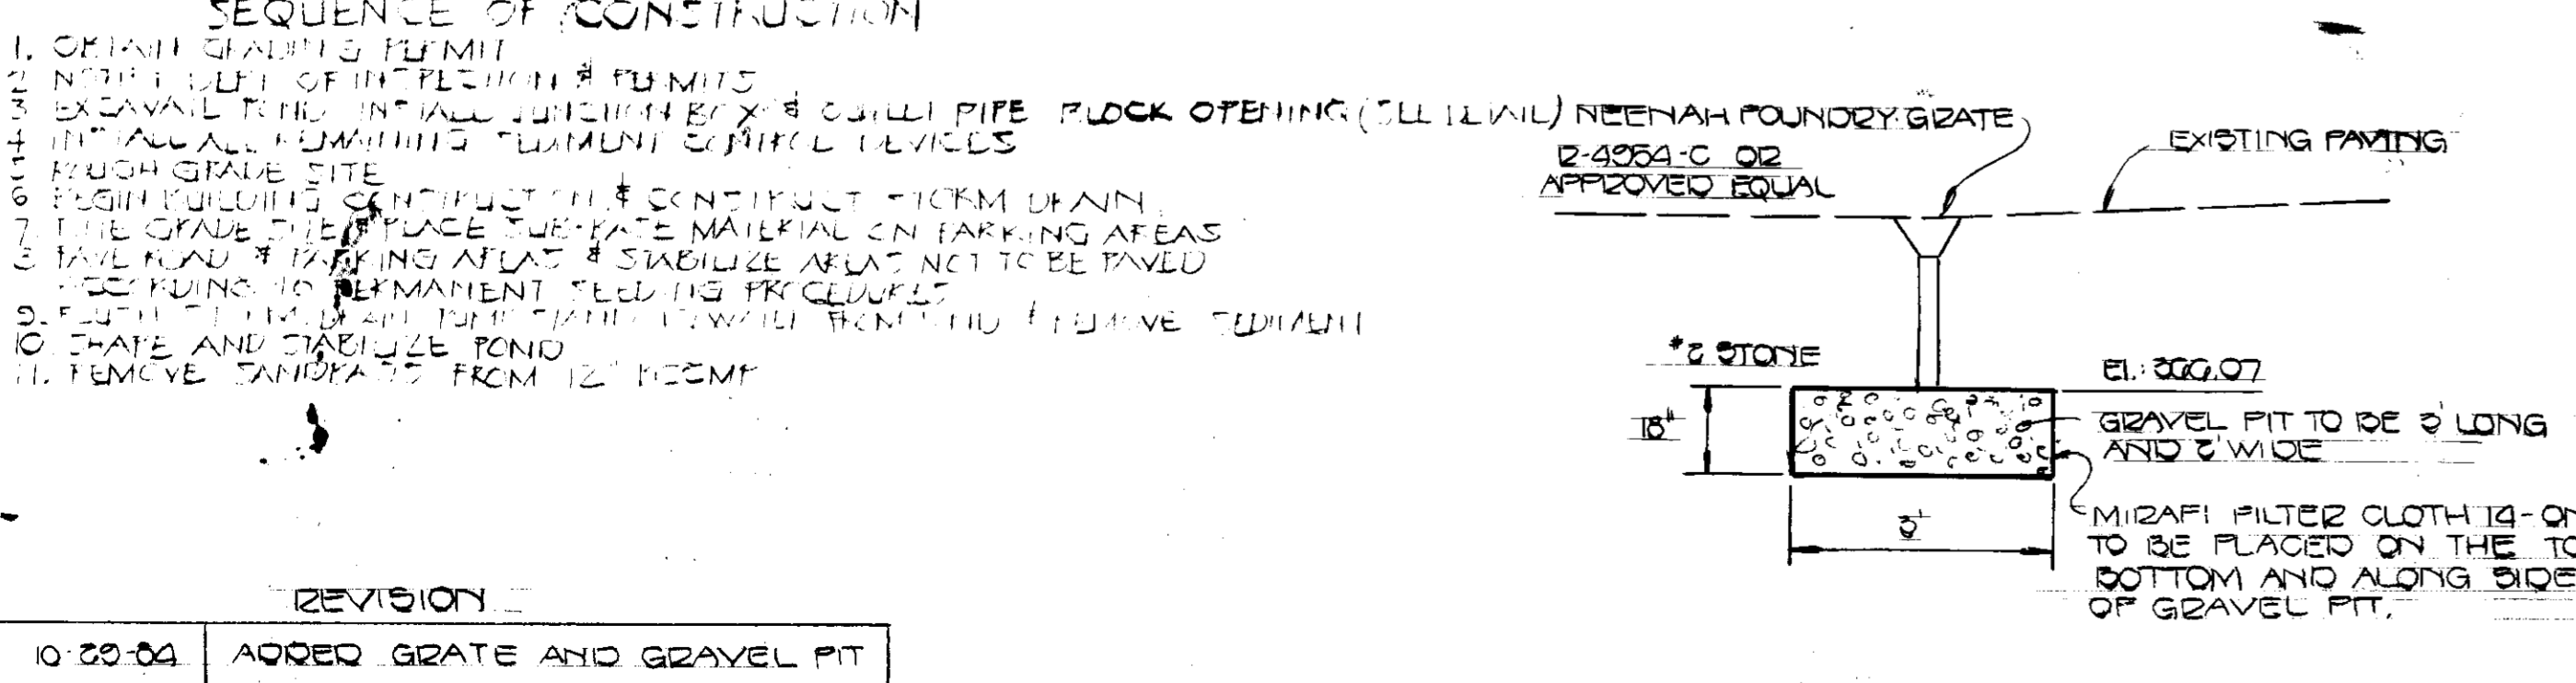 SEQUENCE OF CONSTRUCTION
1. OBTAIN GRADING PERMIT
2 NOTIFY DEPT OF INSPECTION & PERMITS
3 EXCAVATE POND INSTALL JUNCTION BOX & OUTLET PIPE BLOCK OPENING (SEE DETAIL)
4 INSTALL ALL REMAINING SEDIMENT CONTROL DEVICES
5 ROUGH GRADE SITE
6 BEGIN BUILDING CONSTRUCTION & CONSTRUCT STORM DRAIN
7. FINE GRADE SITE & PLACE SUB-BASE MATERIAL ON PARKING AREAS
8 PAVE ROAD & PARKING AREAS & STABILIZE AREAS NOT TO BE PAVED
ACCORDING TO PERMANENT SEEDING PROCEDURES
9. FLUSH STORM DRAIN PUMP WATER FROM POND & REMOVE SEDIMENT
10. SHAPE AND STABILIZE POND
11. REMOVE SANDBAGS FROM 12"
NEENAH FOUNDRY GRATE
R-4954-C OR
APPROVED EQUAL
EXISTING PAVING
#2 STONE
18"
El.: 07
GRAVEL PIT TO BE 3' LONG
AND 2' WIDE
3'
MIRAFI FILTER CLOTH
TO BE PLACED ON THE TO
BOTTOM AND ALONG SIDE
OF GRAVEL PIT.
REVISION
10-29-84 ADDED GRATE AND GRAVEL PIT